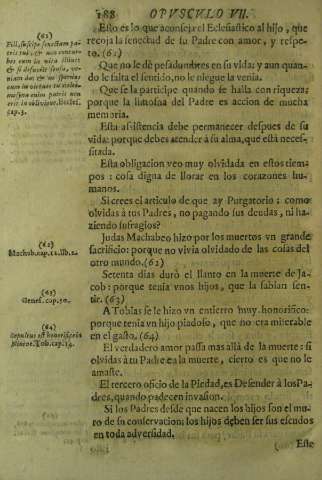 188 OPVSCVLO VII.
Esto es lo que aconseja el Eclesiastico al hijo, que
recoja la senectud de tu Padre con amor, y respe-
to. (61)
Que no le dè pesadumbres en su vida: y aun quan-
do le falta el sentido, no le niegue la venia.
Que se la participe quando se halla con riqueza;
porque la limosna del Padre es accion de mucha
memoria.
Esta asistencia debe permanecer despues de su
vida: porque debes atender à su alma, que està neces-
sitada.
Esta obligacion veo muy olvidada en estos tiem-
pos: cosa digna de llorar en los corazones hu-
manos.
Si crees el articulo de que ay Purgatorio: como
olvidas à tus Padres, no pagando sus deudas, ni ha-
ziendo sufragios?
Judas Machabeo hizo por los muertos vn grande
sacrificio: porque no vivia olvidado de las cosas del
otro mundo. (62)
Setenta dias durò el llanto en la muerte de Ja-
cob: porque tenia vnos hijos, que la sabian sen-
tir. (63)
A Tobias se le hizo vn entierro muy honorifico:
porque tenia vn hijo piadoso, que no era miserable
en el gasto. (64)
El verdadero amor passa mas allà de la muerte: si
olvidas à tu Padre en la muerte, cierto es que no le
amaste.
El tercero oficio de la Piedad, es Defender à los Pa-
dres, quando padecen invasion.
Si los Padres desde que nacen los hijos son el mu-
ro de su conservacion; los hijos deben ser sus escudos
en toda adversidad.
Este
(61)
Fili, suscipe senectam pa-
tris tui, & non contristes
in vita illius:
& si defecerit sensu,
in oblivione. Eccles.
cap. 3.
(62)
Machab. cap. 12. lib. 2.
(63)
Genes. cap. 50.
(64)
Sepultus est honorificè in
Ninive. Tob. cap. 14.